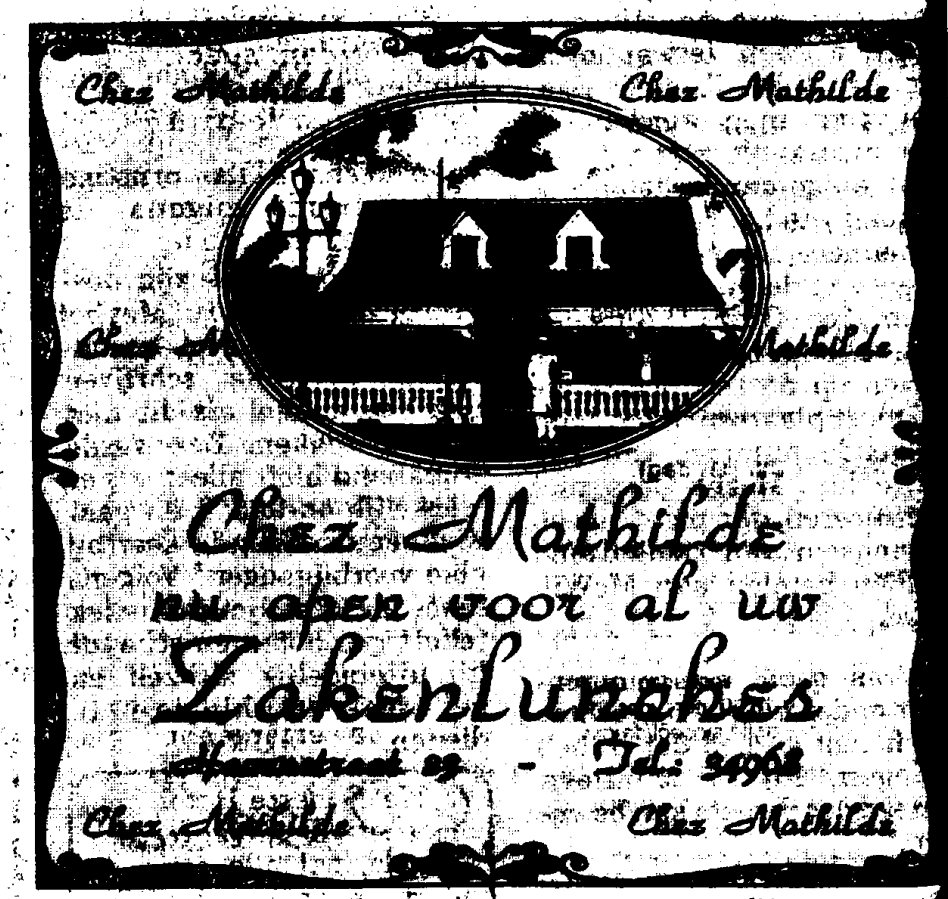 Chez Mathilde Chez Mathilde
Chez M Mathilde
Chez Mathilde
nu open voor al uw
Zakenlunches
Havenstraat 29 - Tel: 34968
Chez Mathilde Chez Mathilde